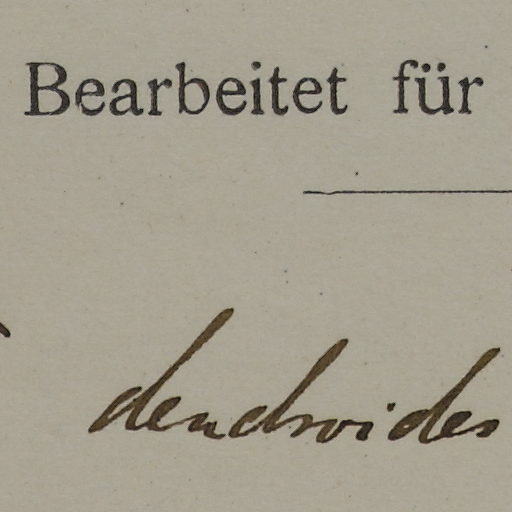 Bearbeitet für
dendroides